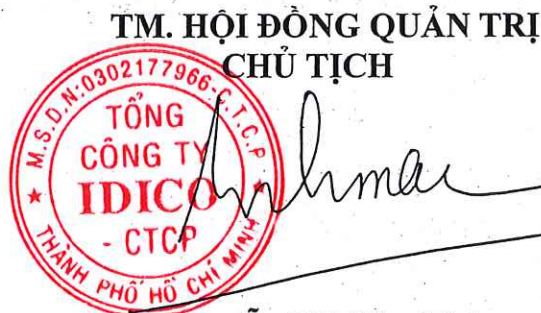 TM. HỘI ĐỒNG QUẢN TRỊ
CHỦ TỊCH
M.S.D.N:0302177966-C.T.C.P
TỔNG
CÔNG TY
IDICO
- CTCP
★ THÀNH PHỐ HỒ CHÍ MINH ★